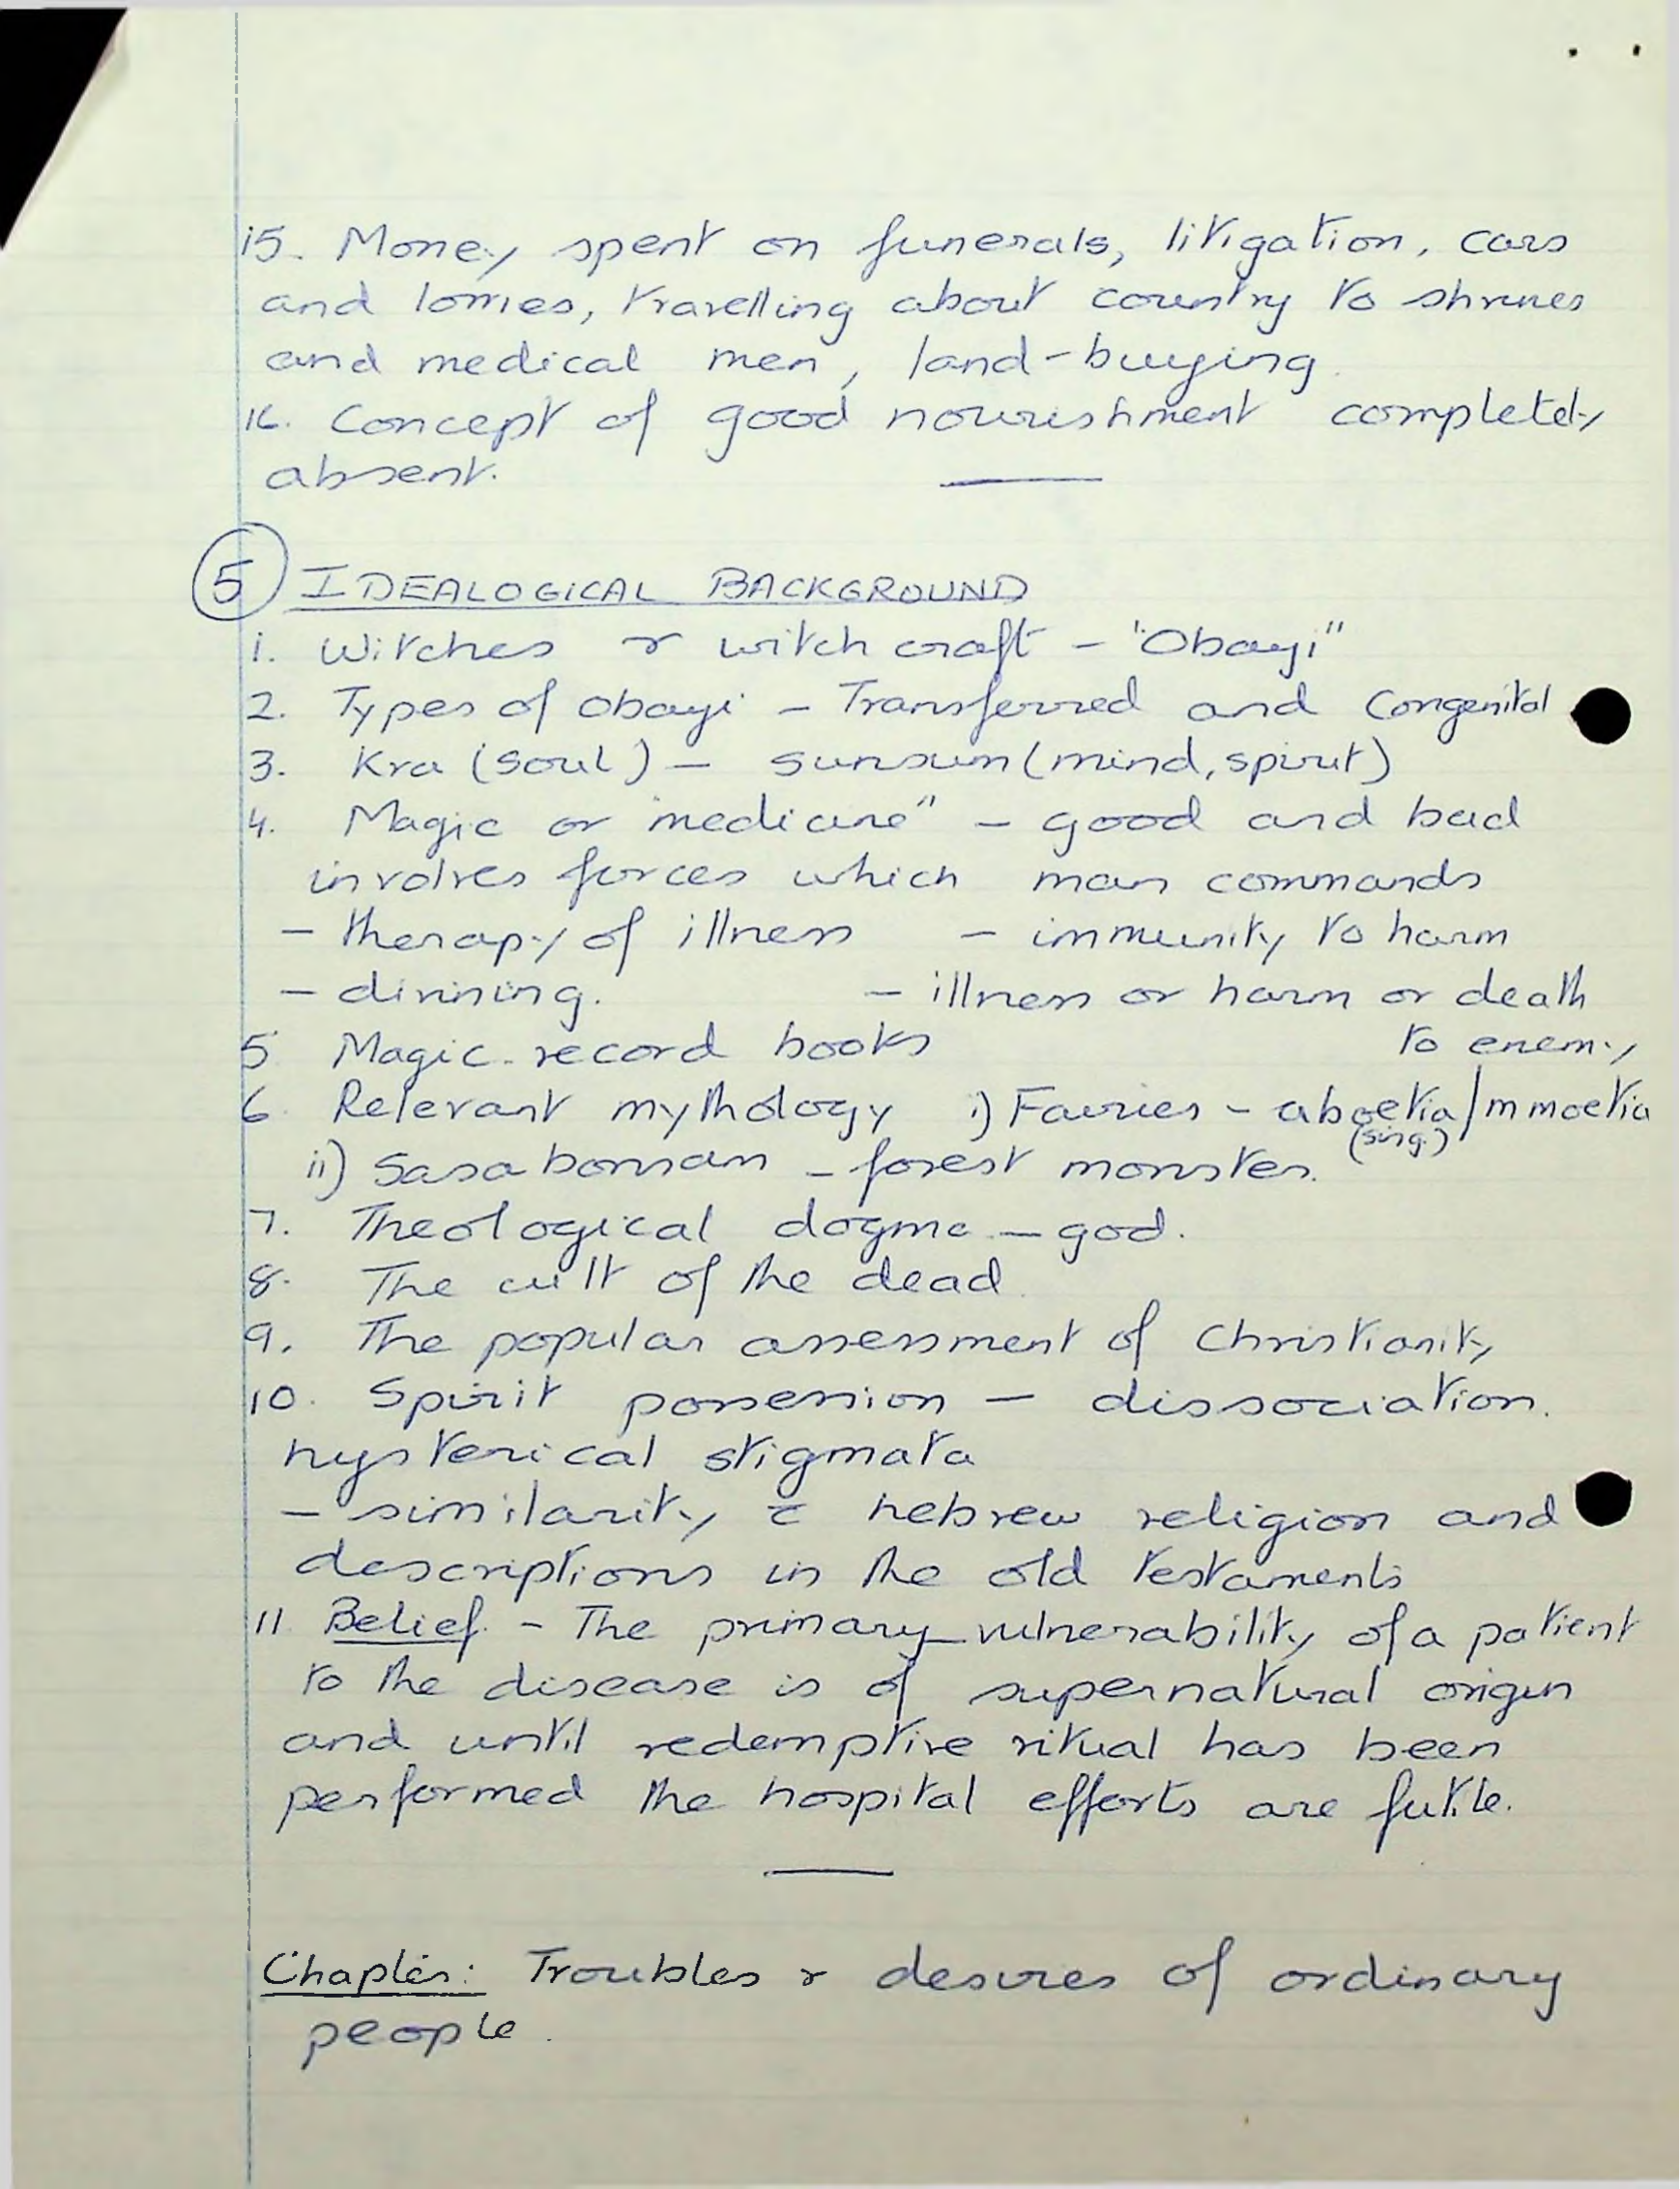 15. Money spent on funerals, litigation, cars
and lorries, travelling about country to shrines
and medical men, land-buying.
16. Concept of good nourishment completely
absent.
5 IDEALOGICAL BACKGROUND
1. Witches & witch craft - "Obayi"
2. Types of obayi - Transferred and Congenital
3. Kra (soul) - sunsum (mind, spirit)
4. Magic or "medicine" - good and bad
involves forces which man commands
- therapy of illness - immunity to harm
- divining. - illness or harm or death
5 Magic record books to enemy
6. Relevant mythology i) Fairies - aboetia/mmoetia
(sing.)
ii) Sasabonsam - forest monster.
7. Theological dogma - god.
8. The cult of the dead.
9. The popular assessment of Christianity
10. Spirit possession - dissociation.
hysterical stigmata
- similarity c̄ hebrew religion and
descriptions in the old testaments
11. Belief - The primary vulnerability of a patient
to the disease is of supernatural origin
and until redemptive ritual has been
performed the hospital efforts are futile.
Chapter: Troubles & desires of ordinary
people.